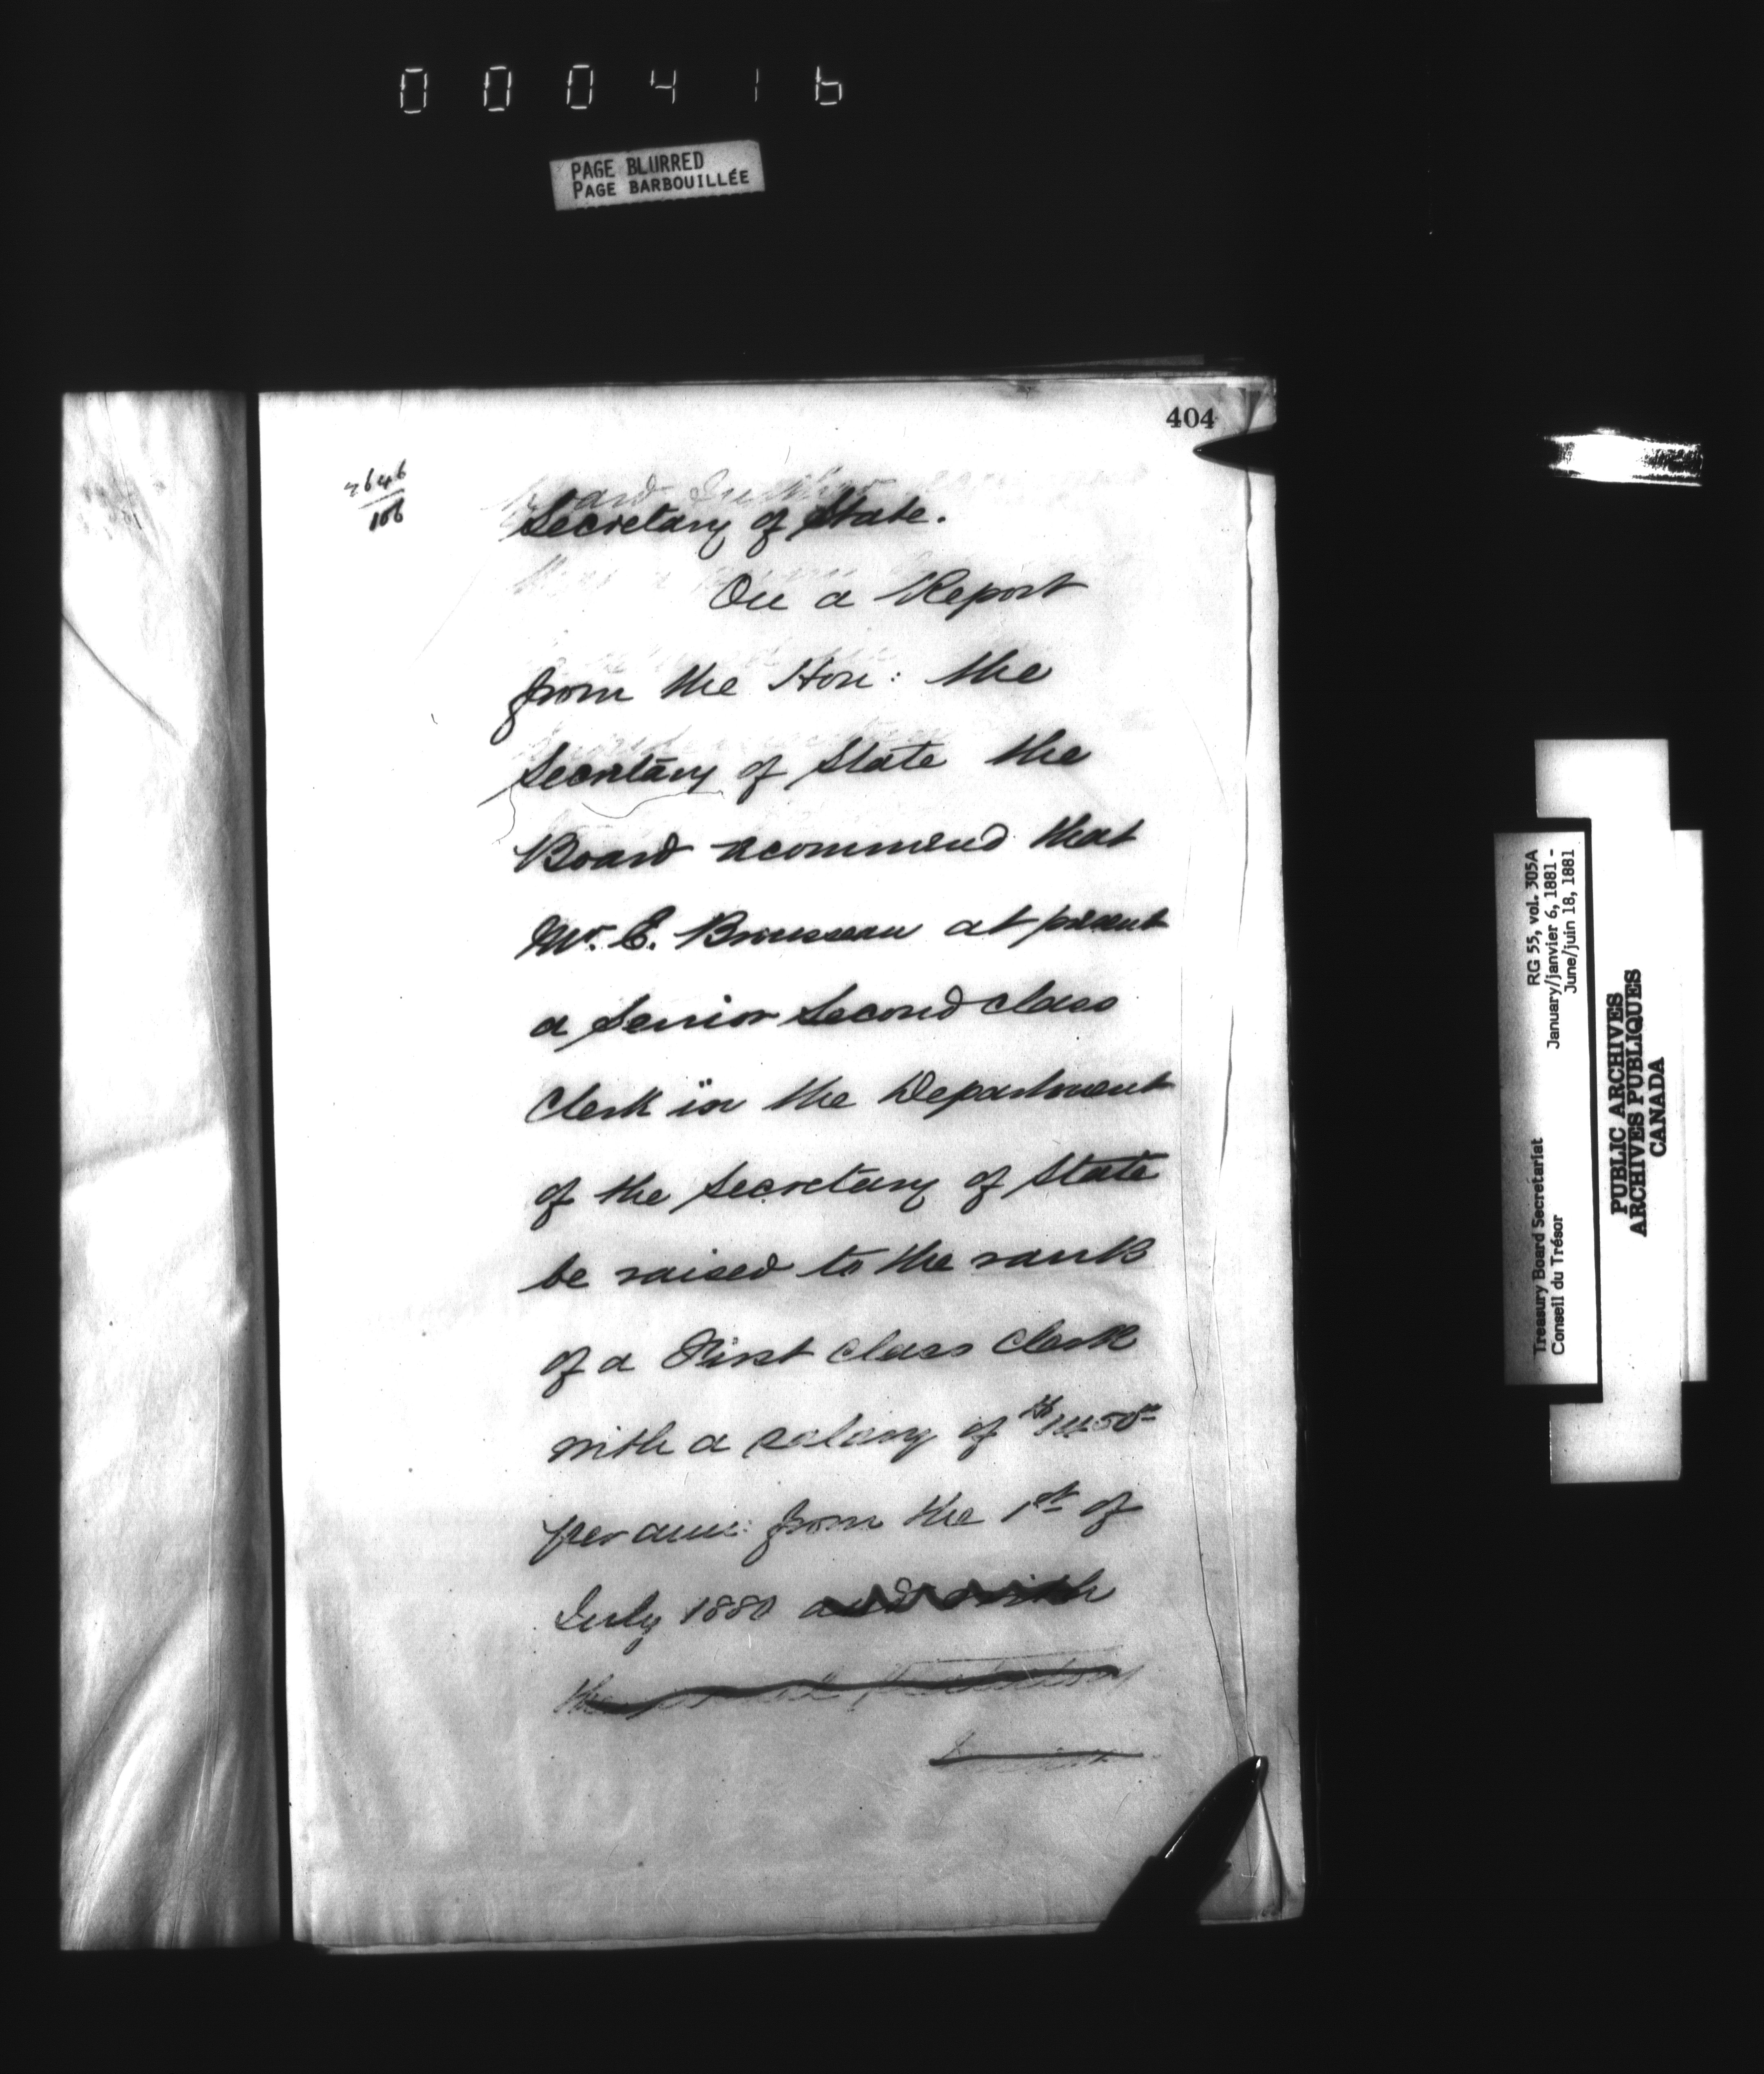 000416
PAGE BLURRED
PAGE BARBOUILLÉE
404
4646
106
Secretary of State.
On a Report
from the Hon: the
Secretary of State the
Board recommend that
Mr. E. Brousseau at present
a Senior Second class
Clerk in the Department
of the Secretary of State
be raised to the rank
of a First class Clerk
with a salary of $1450
per ann: from the 1st of
July 1880 and with
the
RG 55, vol. 305A
January/janvier 6, 1881 -
June/juin 18, 1881
Treasury Board Secretariat
Conseil du Trésor
PUBLIC ARCHIVES
ARCHIVES PUBLIQUES
CANADA